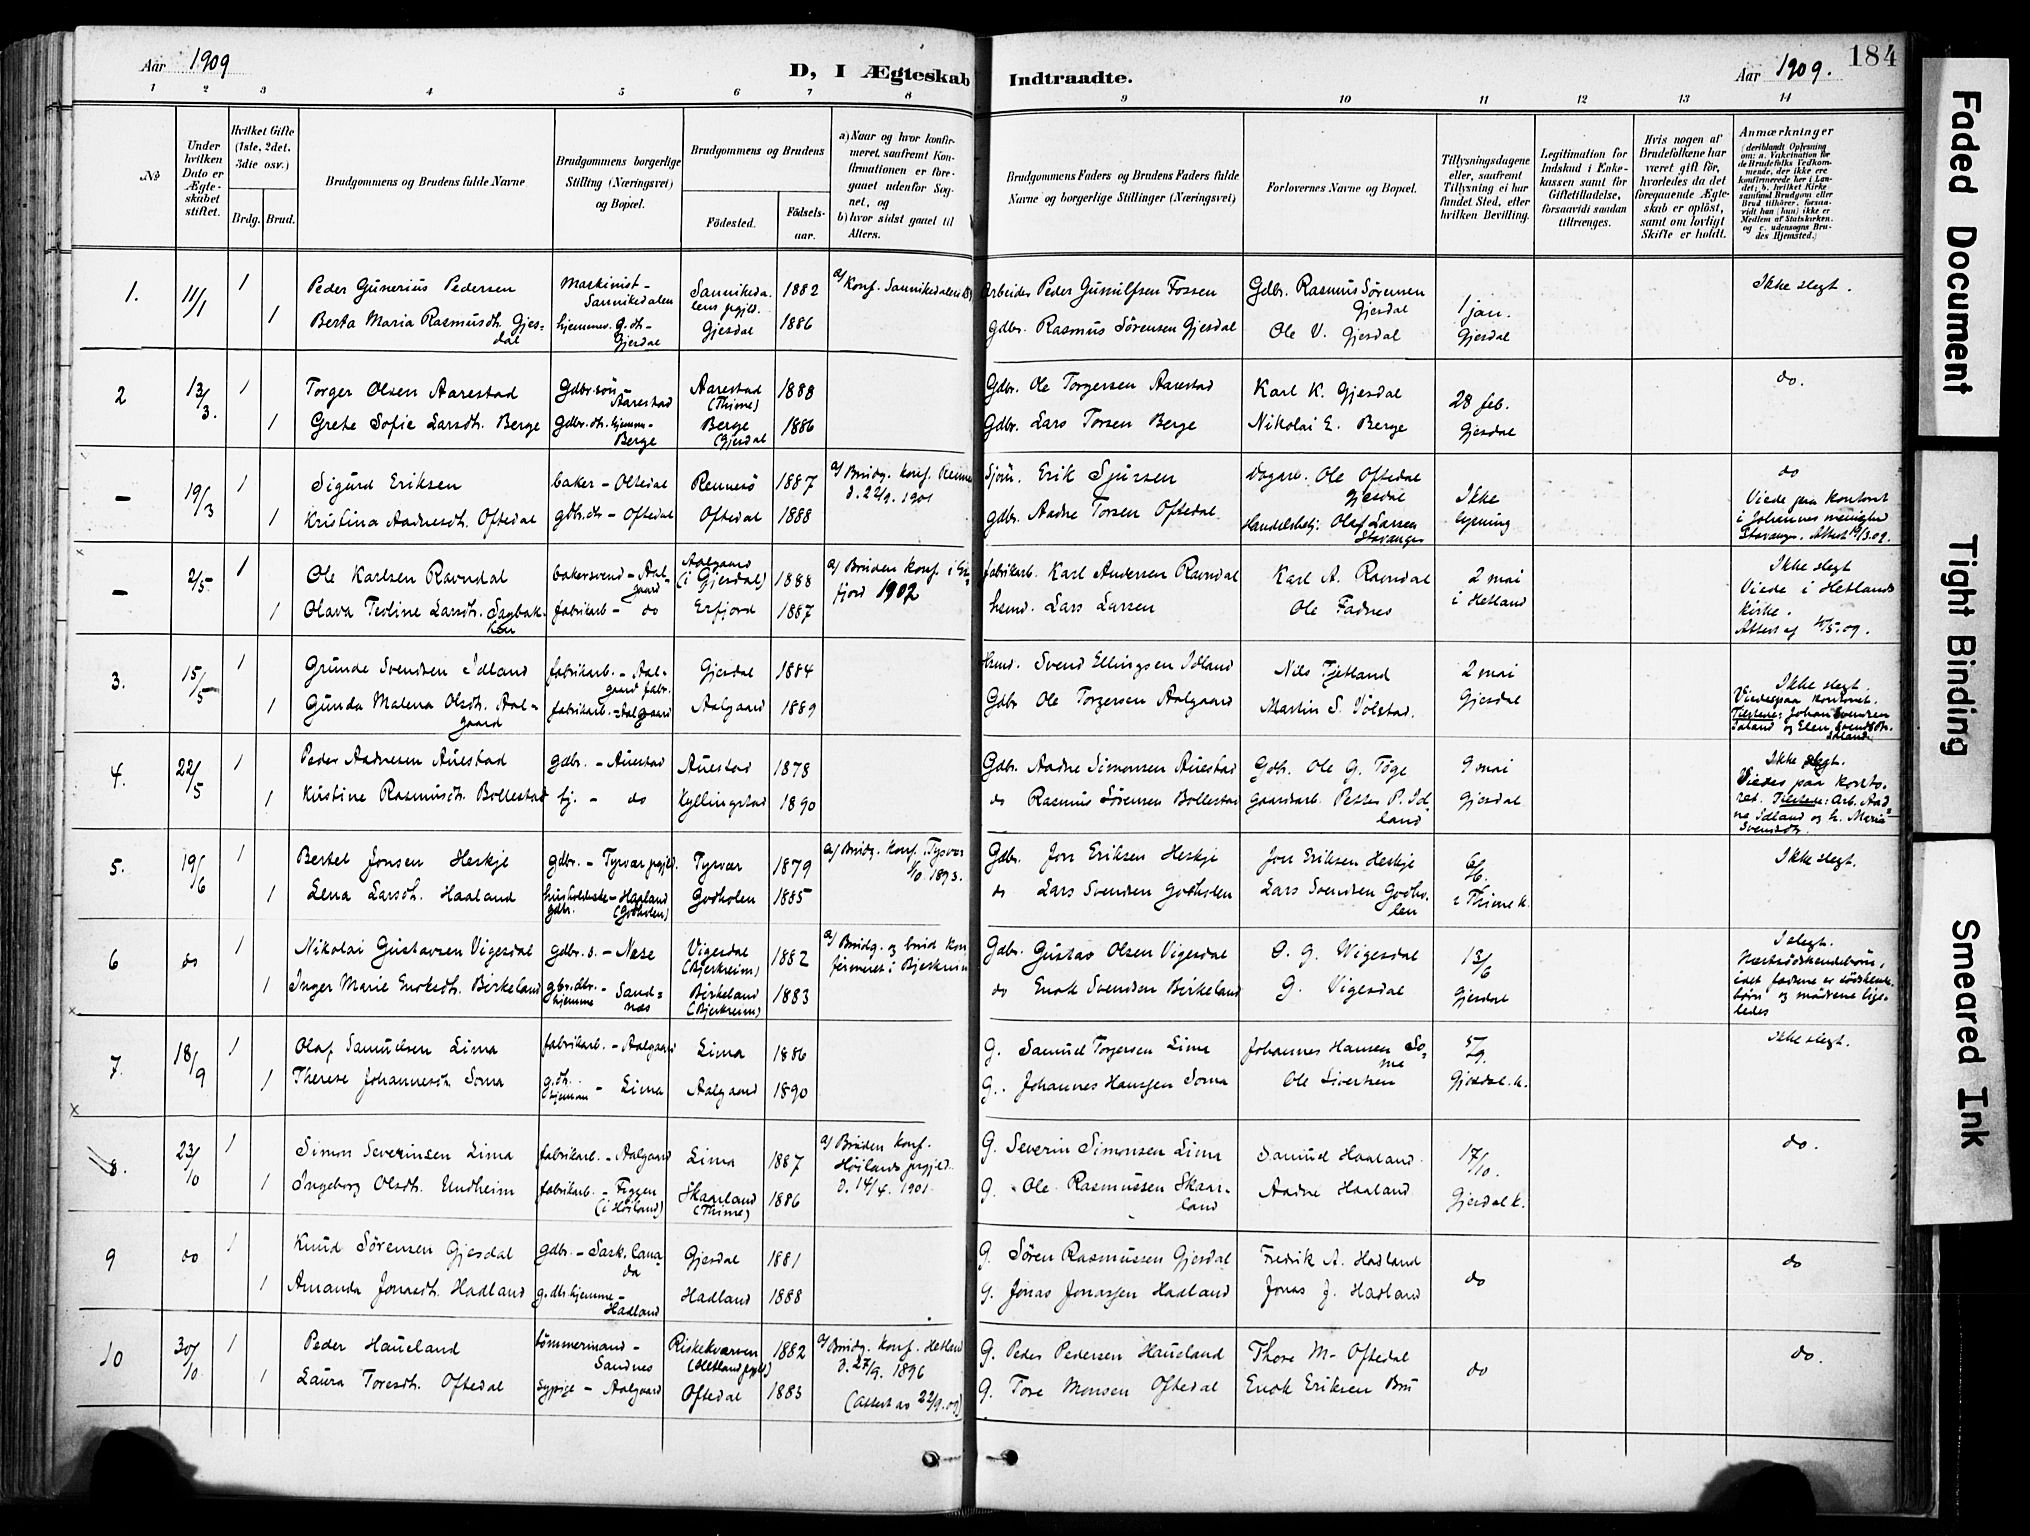 Aar 1909
D, I Ægteskab Indtraadte.
Aar 1909.
184
1 2 3 4 5 6 7 8 9 10 11 12 13 14
No
Under hvilken Dato er Ægteskabet stiftet.
Hvilket Gifte (1ste, 2det, 3die osv.)
Brdg. Brud.
Brudgommens og Brudens fulde Navne
Brudgommens borgerlige Stilling (Næringsvei) og Bopæl.
Brudgommens og Brudens
Födested.
Födsels-aar.
a) Naar og hvor konfirmeret, saafremt Konfirmationen er foregaaet udenfor Sognet, og
b) hvor sidst gaaet til Alters.
Brudgommens Faders og Brudens Faders fulde Navne og borgerlige Stillinger (Næringsvei)
Forlovernes Navne og Bopæl.
Tillysningsdagene eller, saafremt Tillysning ei har fundet Sted, efter hvilken Bevilling.
Legitimation for Indskud i Enkekassen samt for Giftetilladelse, forsaavidt saadan tiltrænges.
Hvis nogen af Brudefolkene har været gift för, hvorledes da det foregaaende Ægteskab er oplöst, samt om lovligt Skifte er holdt.
Anmærkninger (deriblandt Oplysning om: a. Vakcination for de Brudefolks Vedkommende, der ikke ere konfirmerede her i Landet; b. hvilket Kirkesamfund Brudgom eller Brud tilhörer, forsaavidt han (hun) ikke er Medlem af Statskirken, og c. udensogns Brudes Hjemsted.)
1. 11/1 1 Peder Gunerius Pedersen Maskinist - Sannikedalen Sannikedalens prgjld. 1882 a/ Konf. Sannikedalen Arbeider Peder Gunulfsen Fossen Gdbr. Rasmus Sörensen Gjesdal 1 jan. Gjesdal Ikke slegt.
1 Berta Maria Rasmusdtr. Gjesdal hjemmev. g.dtr - Gjesdal Gjesdal 1886 gdbr. Rasmus Sörensen Gjesdal Ole V. Gjesdal
2 13/3. 1 Torger Olsen Aarestad Gdbr.sön Aarestad Aarestad (Thime) 1888 Gdbr. Ole Torgersen Aarestad Karl K. Gjesdal 28 feb. Gjesdal do.
1 Grete Sofie Larsdtr. Berge gdbr.dtr. hjemme - Berge Berge (Gjesdal 1886 Gdbr. Lars Torsen Berge Nikolai E. Berge
- 19/3 1 Sigurd Eriksen baker - Oltedal Rennesö 1887 a/ Brudg. konf. Renne d. 22/9. 1901 Sjöm. Erik Sjursen Vogarb. Ole Oftedal Gjesdal Ikke lysning do Viede paa kontoret i Johannes menighed Stavanger. Attest 19/3.09.
1 Kristina Aadnesdtr. Oftedal gdbr.dtr - Oftedal Oftedal 1888 gdbr. Aadne Torsen Oftedal Handelsbetj: Olaf Larsen Stavanger
- 2/5. 1 Ole Karlsen Ravndal bakersvend - Aalgaard Aalgaard (i Gjesdal) 1888 a/ Bruden konf. i Erfjord 1902 fabrikarb. Karl Andersen Ravndal Karl A. Ravndal 2 mai i Hetland Ikke slegt Viede i Hetlands kirke. Attest af 4/5.09.
1 Olava Teoline Larsdtr. Sagbakken fabrikarb - do Erfjord 1887 hsmd. Lars Larsen Ole Fadnes
3. 15/5 1 Grunde Svendsen Idland fabrikarb. - Aalgaard fabr. Gjesdal 1884 Hsmd. Svend Ellingsen Idland Nils Tjetland 2 mai Gjesdal Ikke slegt. Viedes paa kontoret. Tilstede: Johan Svendsen Idland og Elen Svendsdtr. Idland
1 Gunda Malena Olsdtr. Aalgaard fabrikarb. - Aalgaard Aalgaard 1889 Gdbr Ole Torgersen Aalgaard Martin S. Völstad.
4. 22/5 1 Peder Aadnesen Auestad gdbr. - Auestad Auestad 1878 Gdbr. Aadne Simonsen Auestad Gdbr. Ole G. Töge 9 mai Gjesdal Ikke slegt. Viedes paa kontoret. Tilstede: Arb. Aadne Idland og h. Maria Svendsdtr.
1 Kristine Rasmusdtr. Bollestad hj. - do Kyllingstad 1890 do Rasmus Sörensen Bollestad Gaardarb. Petter P. Idland
5. 19/6 1 Bertel Jonsen Heskje gdbr. - Tysvær prgjld. Tysvær 1879 a/ Brudg. konf. Tysvær 1893. Gdbr. Jon Eriksen Heskje Jon Eriksen Heskje 6/6. i Thime k. Ikke slegt.
1 Lena Larsdtr. Haaland husholderske - Haaland gdbr. (Godholen) Godholen 1885 do Lars Svendsen Godholen Lars Svendsen Godholen
6 do 1 Nikolai Gustavsen Vigesdal gdbr. s. - Nese Vigesdal (Bjerkreim) 1882 a/ Brudg. og brud konfirmeret i Bjerkreim Gdbr. Gustav Olsen Vigesdal O. G. Vigesdal 13/6 Gjesdal I slegt. Næstsöskendebörn, idet fædrene er söskendebörn og mödrene ligeledes
1 Inger Marie Enoksdtr. Birkeland gbr.dtr. hjemme - Sandnes Birkeland (Bjerkreim) 1883 do Enok Svendsen Birkeland G. Vigesdal
7. 18/9 1 Olaf Samuelsen Lima fabrikarb. - Aalgaard Lima 1886 G. Samuel Torgersen Lima Johannes Hansen Soma 5/9. Gjesdal k. Ikke slegt.
1 Therese Johannesdtr. Soma g.dtr. hjemme - Lima Aalgaard 1890 G. Johannes Hansen Soma Ole Sivertsen
8. 23/10 1 Simon Severinsen Lima fabrikarb. - Aalgaard Lima 1887 a/ Bruden konf. Höilands prgjld. d. 14/4. 1901. G. Severin Simonsen Lima Samuel Haaland 17/10. Gjesdal k. do.
1 Ingeborg Olsdtr. Undheim fabrikarb. - Figgen (i Höiland) Skaarland (Thime) 1886 G. Ole Rasmussen Skaarland Aadne Haaland
9 do 1 Knud Sörensen Gjesdal gdbr. - Sask. Canada Gjesdal 1881 G. Sören Rasmussen Gjesdal Fredrik A. Hadland do do
1 Amanda Jonasdtr. Hadland g.dtr hjemme - Hadland Hadland 1888 G. Jonas Jonassen Hadland Jonas J. Hadland
10 30/10 1 Peder Haueland tömmermand - Sandnes Riskekværven (Hetland prgjld) 1882 a/ Brudg. konf. Hetland d. 27/9. 1896 G. Peder Pedersen Haueland Thore M. Oftedal do do.
1 Laura Toresdtr. Oftedal sypige - Aalgaard Oftedal 1883 (Attest av 22/9.09) G. Tore Monsen Oftedal Enok Eriksen Bru
Faded Document
Tight Binding
Smeared Ink